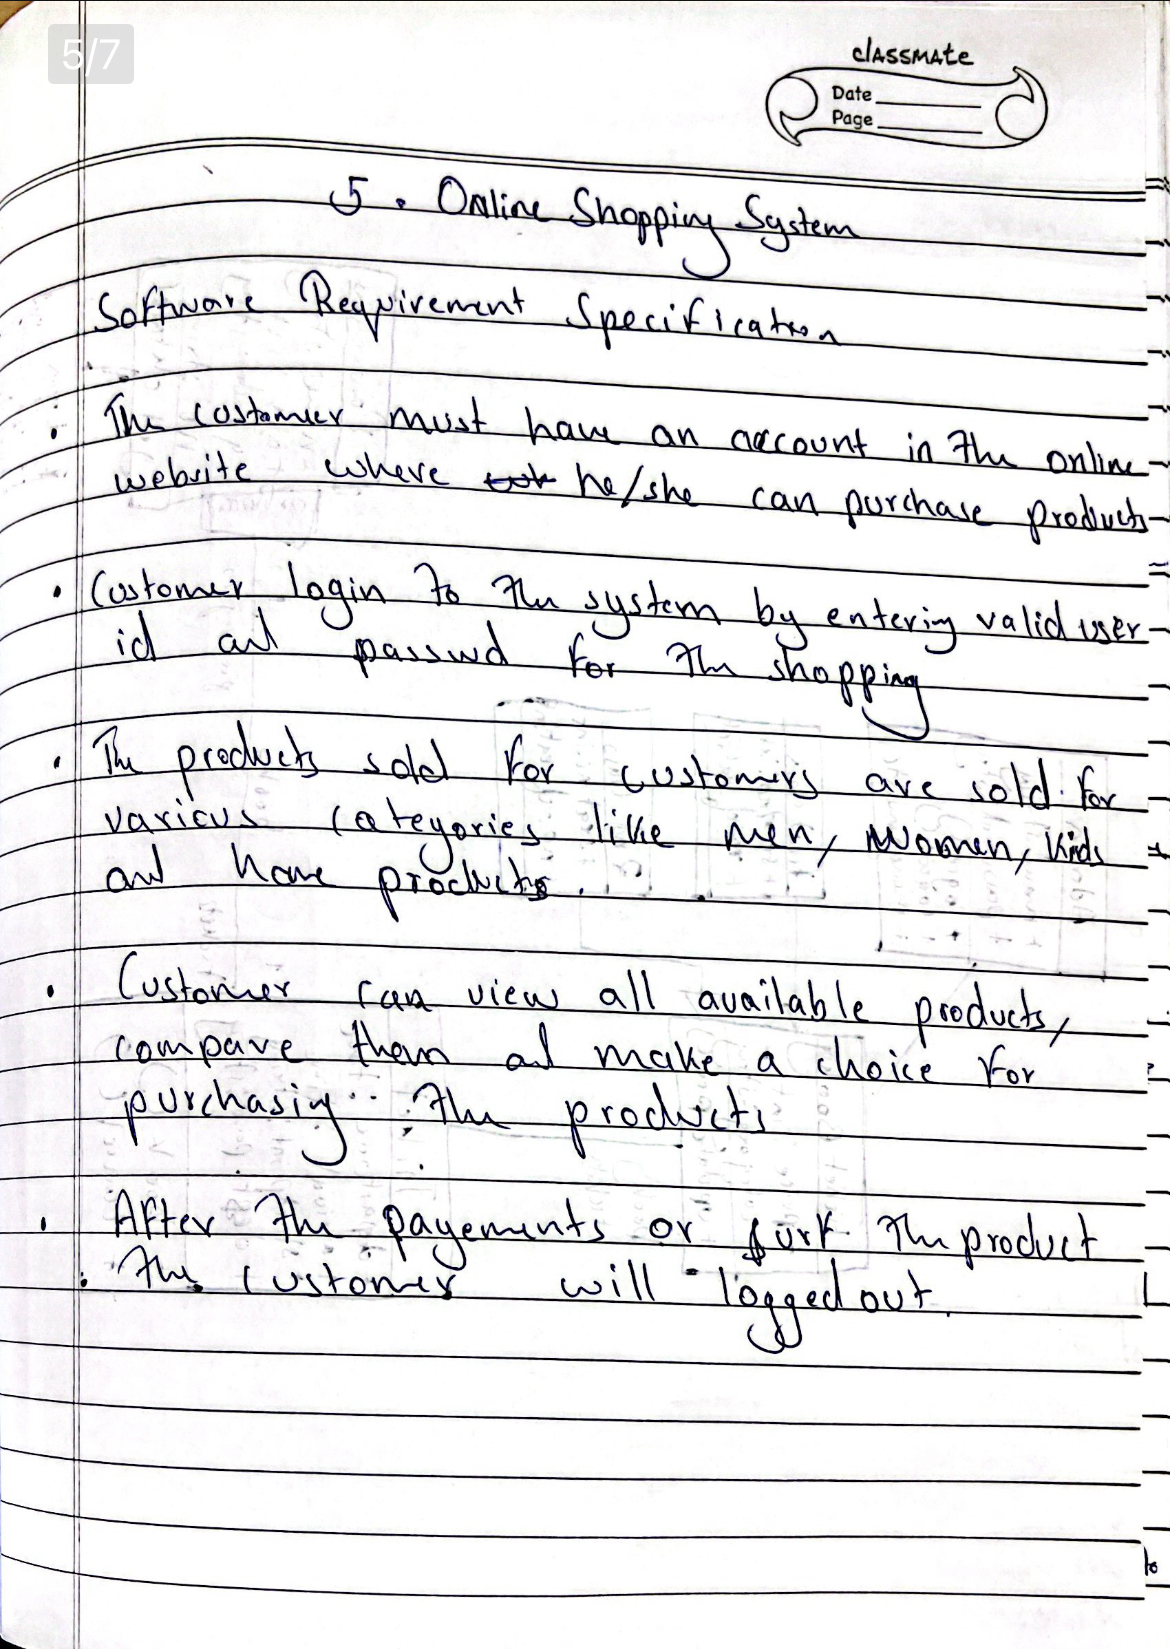 5/7
classmate
Date
Page
5. Online Shopping System
Software Requirement Specification
• The customer must have an account in the online
website where he/she can purchase products
• Customer login to the system by entering valid user
id and passwd for the shopping
• The products sold for customers are sold for
various categories like men, women, kids
and home products.
• Customer can view all available products,
compare them and make a choice for
purchasing the products
• After the payements or surf the product
the customer will logged out.